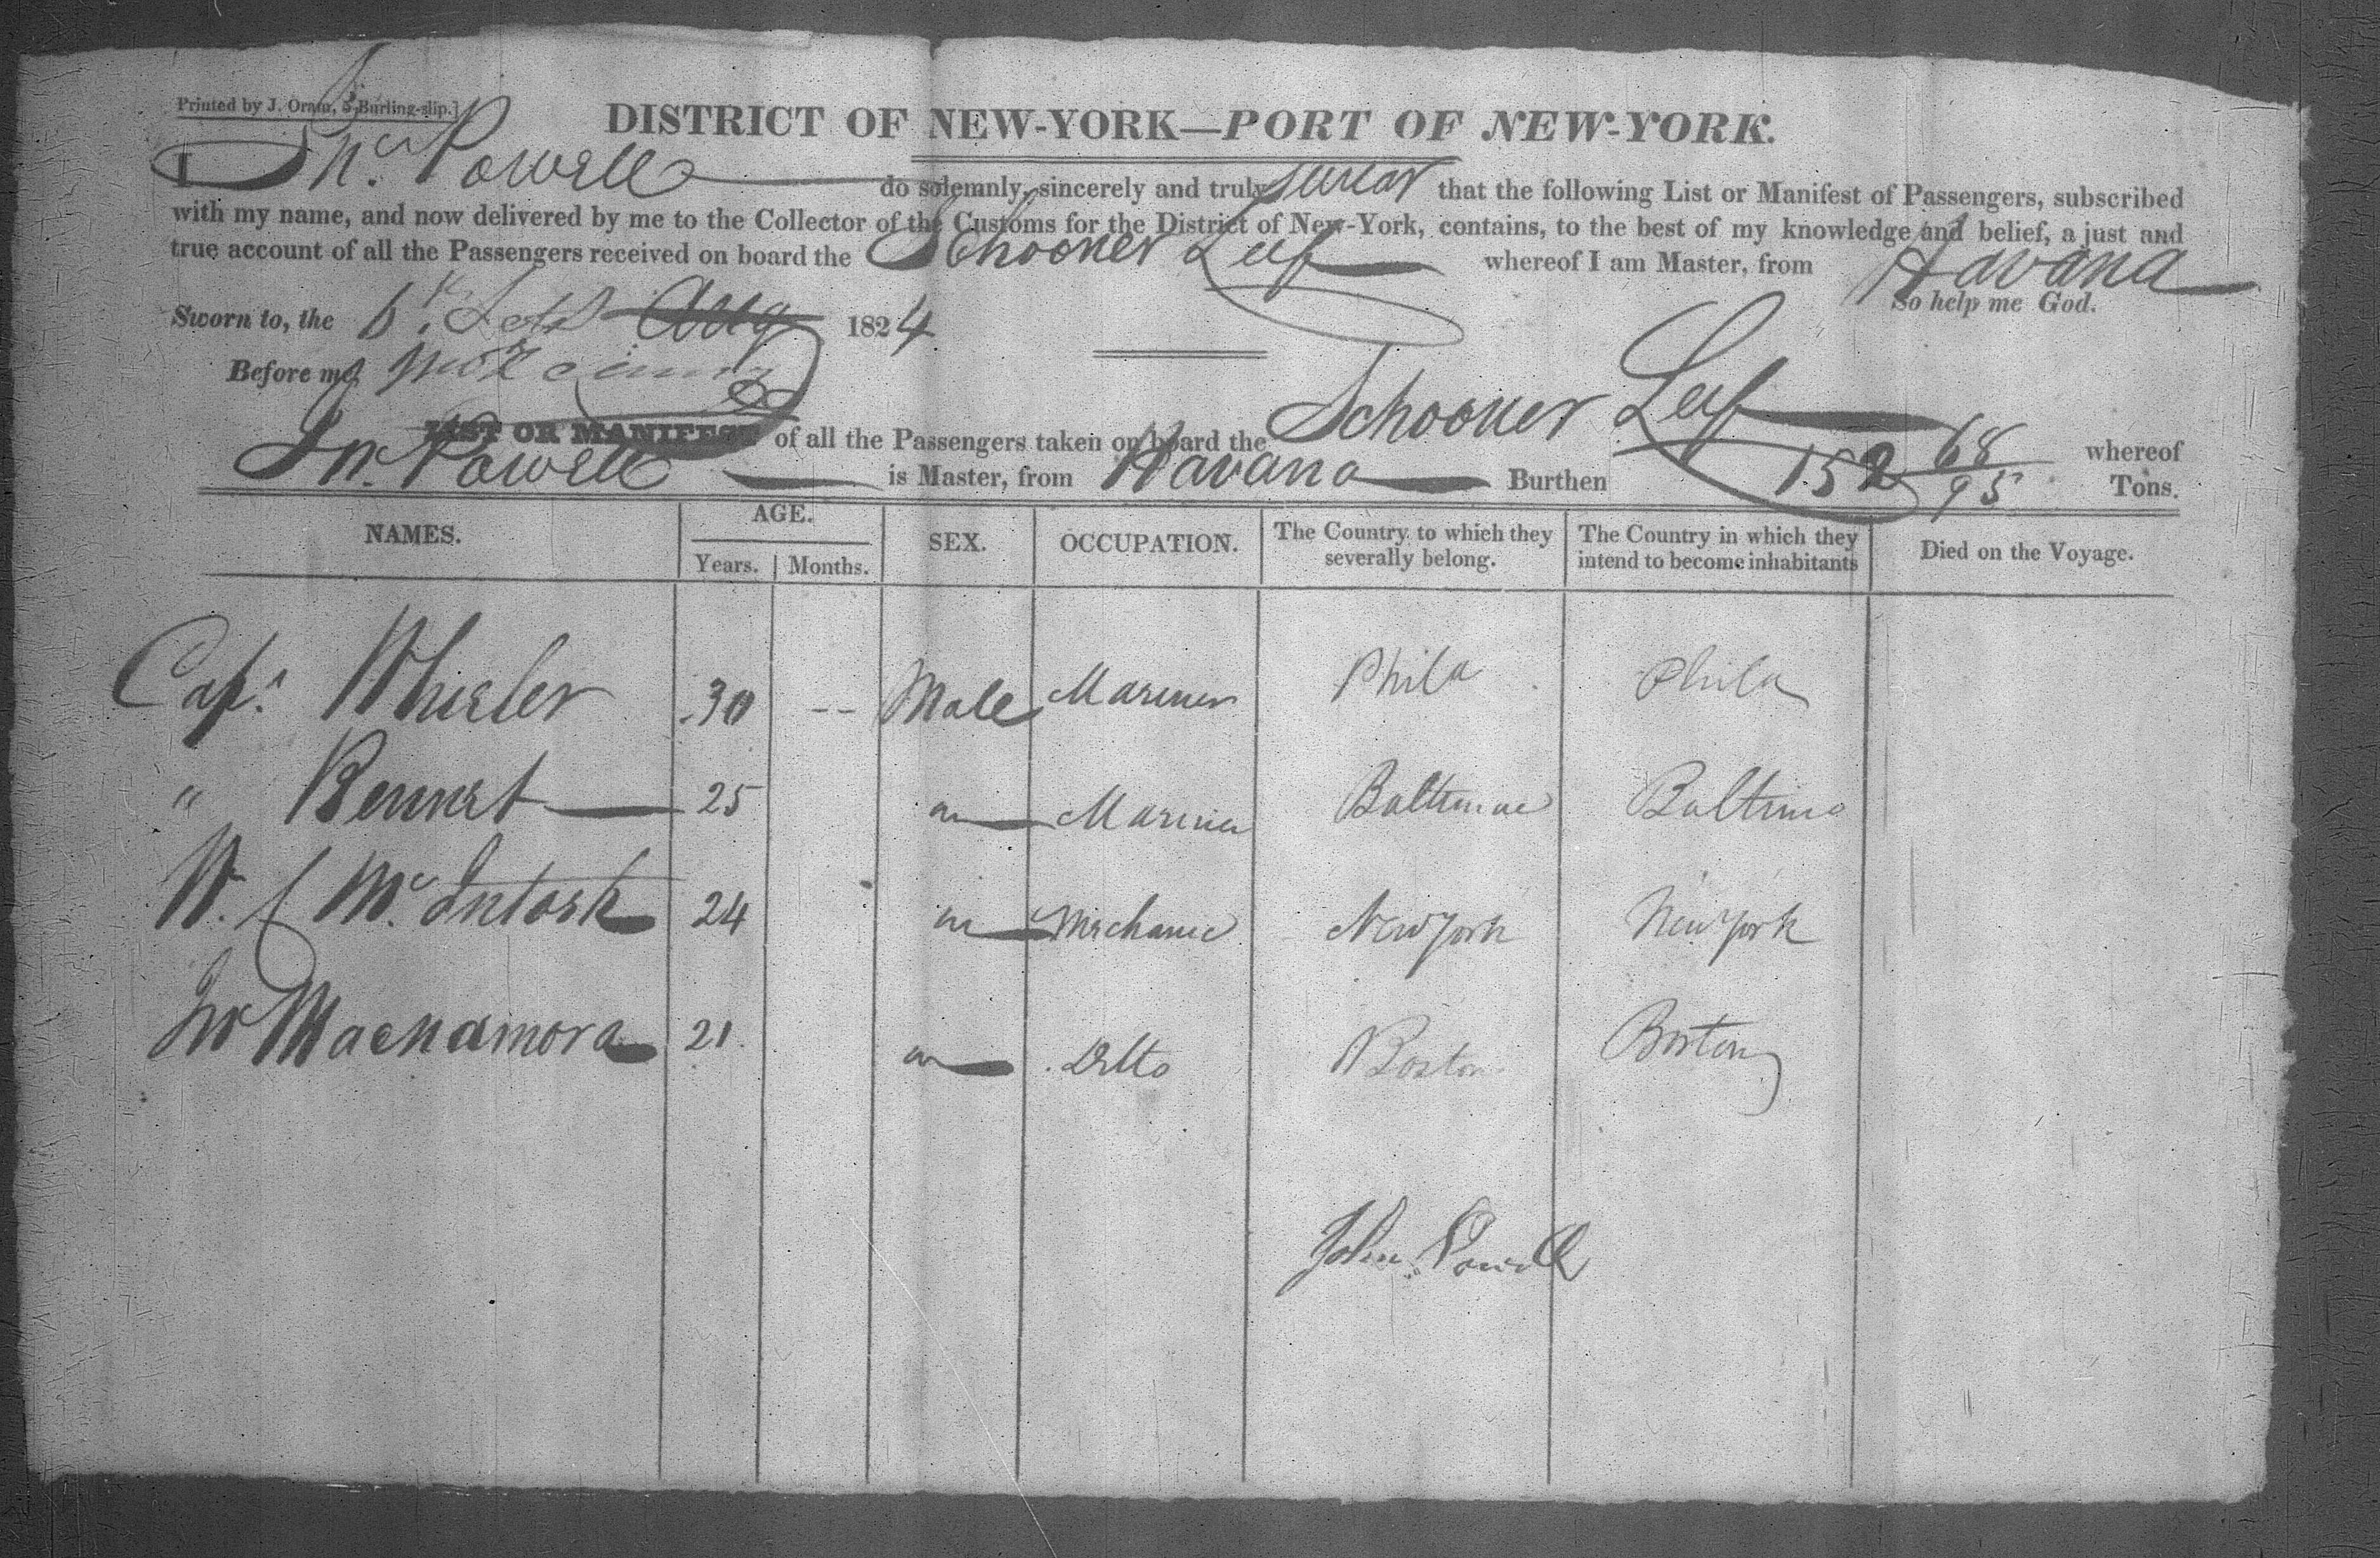 Printed by J. Oram, 5, Burling-slip.]
DISTRICT OF NEW-YORK—PORT OF NEW-YORK.
I Jnº. Powell do solemnly, sincerely and truly swear that the following List or Manifest of Passengers, subscribed
with my name, and now delivered by me to the Collector of the Customs for the District of New-York, contains, to the best of my knowledge and belief, a just and
true account of all the Passengers received on board the Schooner Leaf whereof I am Master, from Havana
So help me God.
Sworn to, the 6th. Sept Aug 1824
Before me,
LIST OR MANIFEST of all the Passengers taken on board the Schooner Leaf whereof
Jnº. Powell is Master, from Havana Burthen 152 68/95 Tons.
NAMES. AGE. SEX. OCCUPATION. The Country to which they severally belong. The Country in which they intend to become inhabitants Died on the Voyage.
Years. Months.
Capt. Wheeler 30 -- Male Mariner Phila Phila
" Bennet 25 m Mariner Baltimore Baltimo
W. f McIntosh 24 m Mechanic New York New York
Jnº Macnamora 21. m Ditto Boston Boston
John Powell